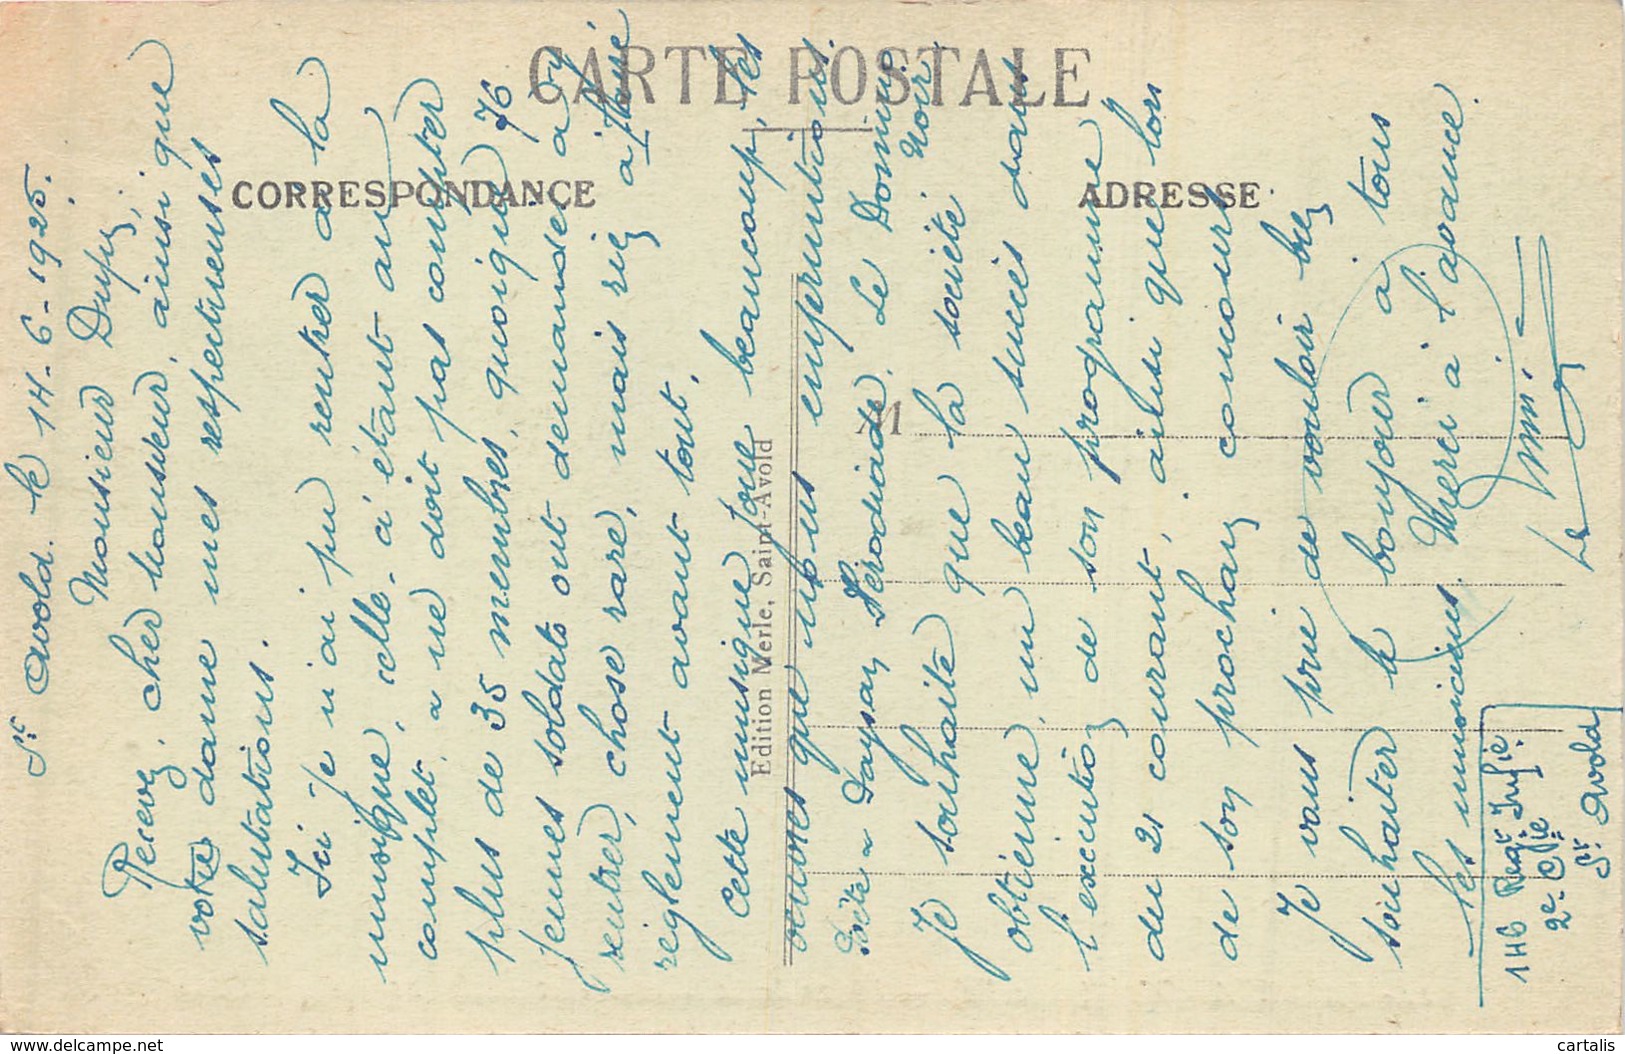 CARTE POSTALE
CORRESPONDANCE
ADRESSE
M
Edition Merle, Saint-Avold
St Avold. le 14-6-1925.
Monsieur Dupuy,
Recevez, cher Monsieur, ainsi que
votre dame mes respectueuses
salutations.
Ici je n'ai pu rentrer à la
musique, celle-ci étant au
complet, a ne doit pas compter
plus de 35 membres, quoique 76
jeunes soldats ont demandé à y
rentrer, chose rare, mais rien à fait
règlement avant tout.
Cette musique joue beaucoup, les
œuvres que nous empruntions.
Poète & Paysan, Hérodiade, Le Domino Noir
Je souhaite que la société
obtienne un beau succès dans
l'exécution de son programme
du 21 courant, ainsi que lors
de son prochain concours
Je vous prie de vouloir bien
souhaiter le bonjour à tous
les musiciens. Merci à l'avance.
146 Regt Infie
2e Cie
St Avold
www.delcampe.net
cartalis